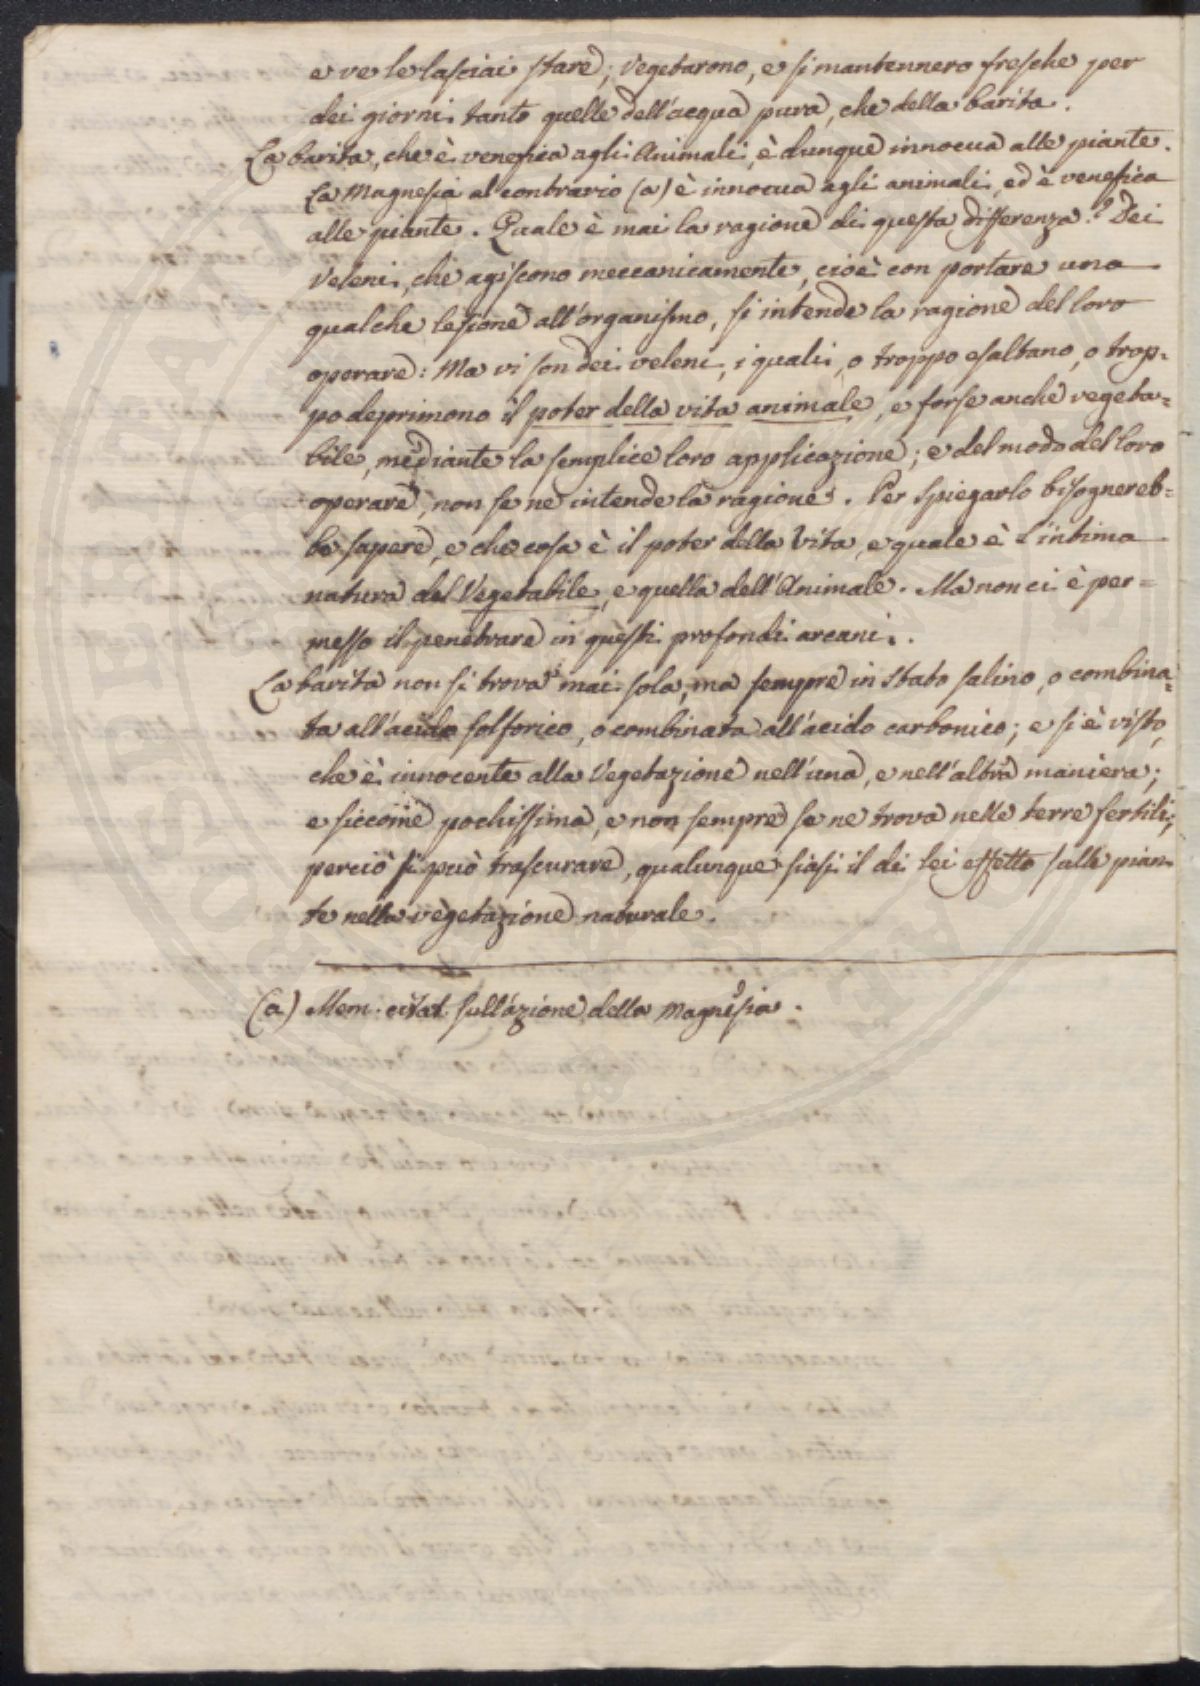 e ve le lasciai stare; vegetarono, e si mantennero fresche per
dei giorni tanto quelle dell'acqua pura, che della barita.
La barita, che è venefica agli Animali, è dunque innocua alle piante.
La Magnesia al contrario (a) è innocua agli animali, ed è venefica
alle piante. Quale è mai la ragione di questa differenza? Dei
veleni, che agiscono meccanicamente, cioè con portare una
qualche lesione all'organismo, si intende la ragione del loro
operare: Ma vi son dei veleni, i quali, o troppo esaltano, o trop-
po deprimono il poter della vita animale, e forse anche vegeta=
bile, mediante la semplice loro applicazione; e del modo del loro
operare, non se ne intende la ragione. Per spiegarlo bisognereb=
be sapere, e che cosa è il poter della Vita, e quale è l'intima
natura del Vegetabile, e quella dell'Animale. Ma non ci è per=
messo il penetrare in questi profondi arcani.
La barita non si trova mai sola, ma sempre in stato salino, o combina=
ta all'acido solforico, o combinata all'acido carbonico; e si è visto,
che è innocente alla Vegetazione nell'una, e nell'altra maniera;
e siccome pochissima, e non sempre se ne trova nelle terre fertili;
perciò si può trascurare, qualunque siasi il di lei effetto sulle pian-
te nella vegetazione naturale.
(a) Mem. citat. sull'azione della Magnesia.